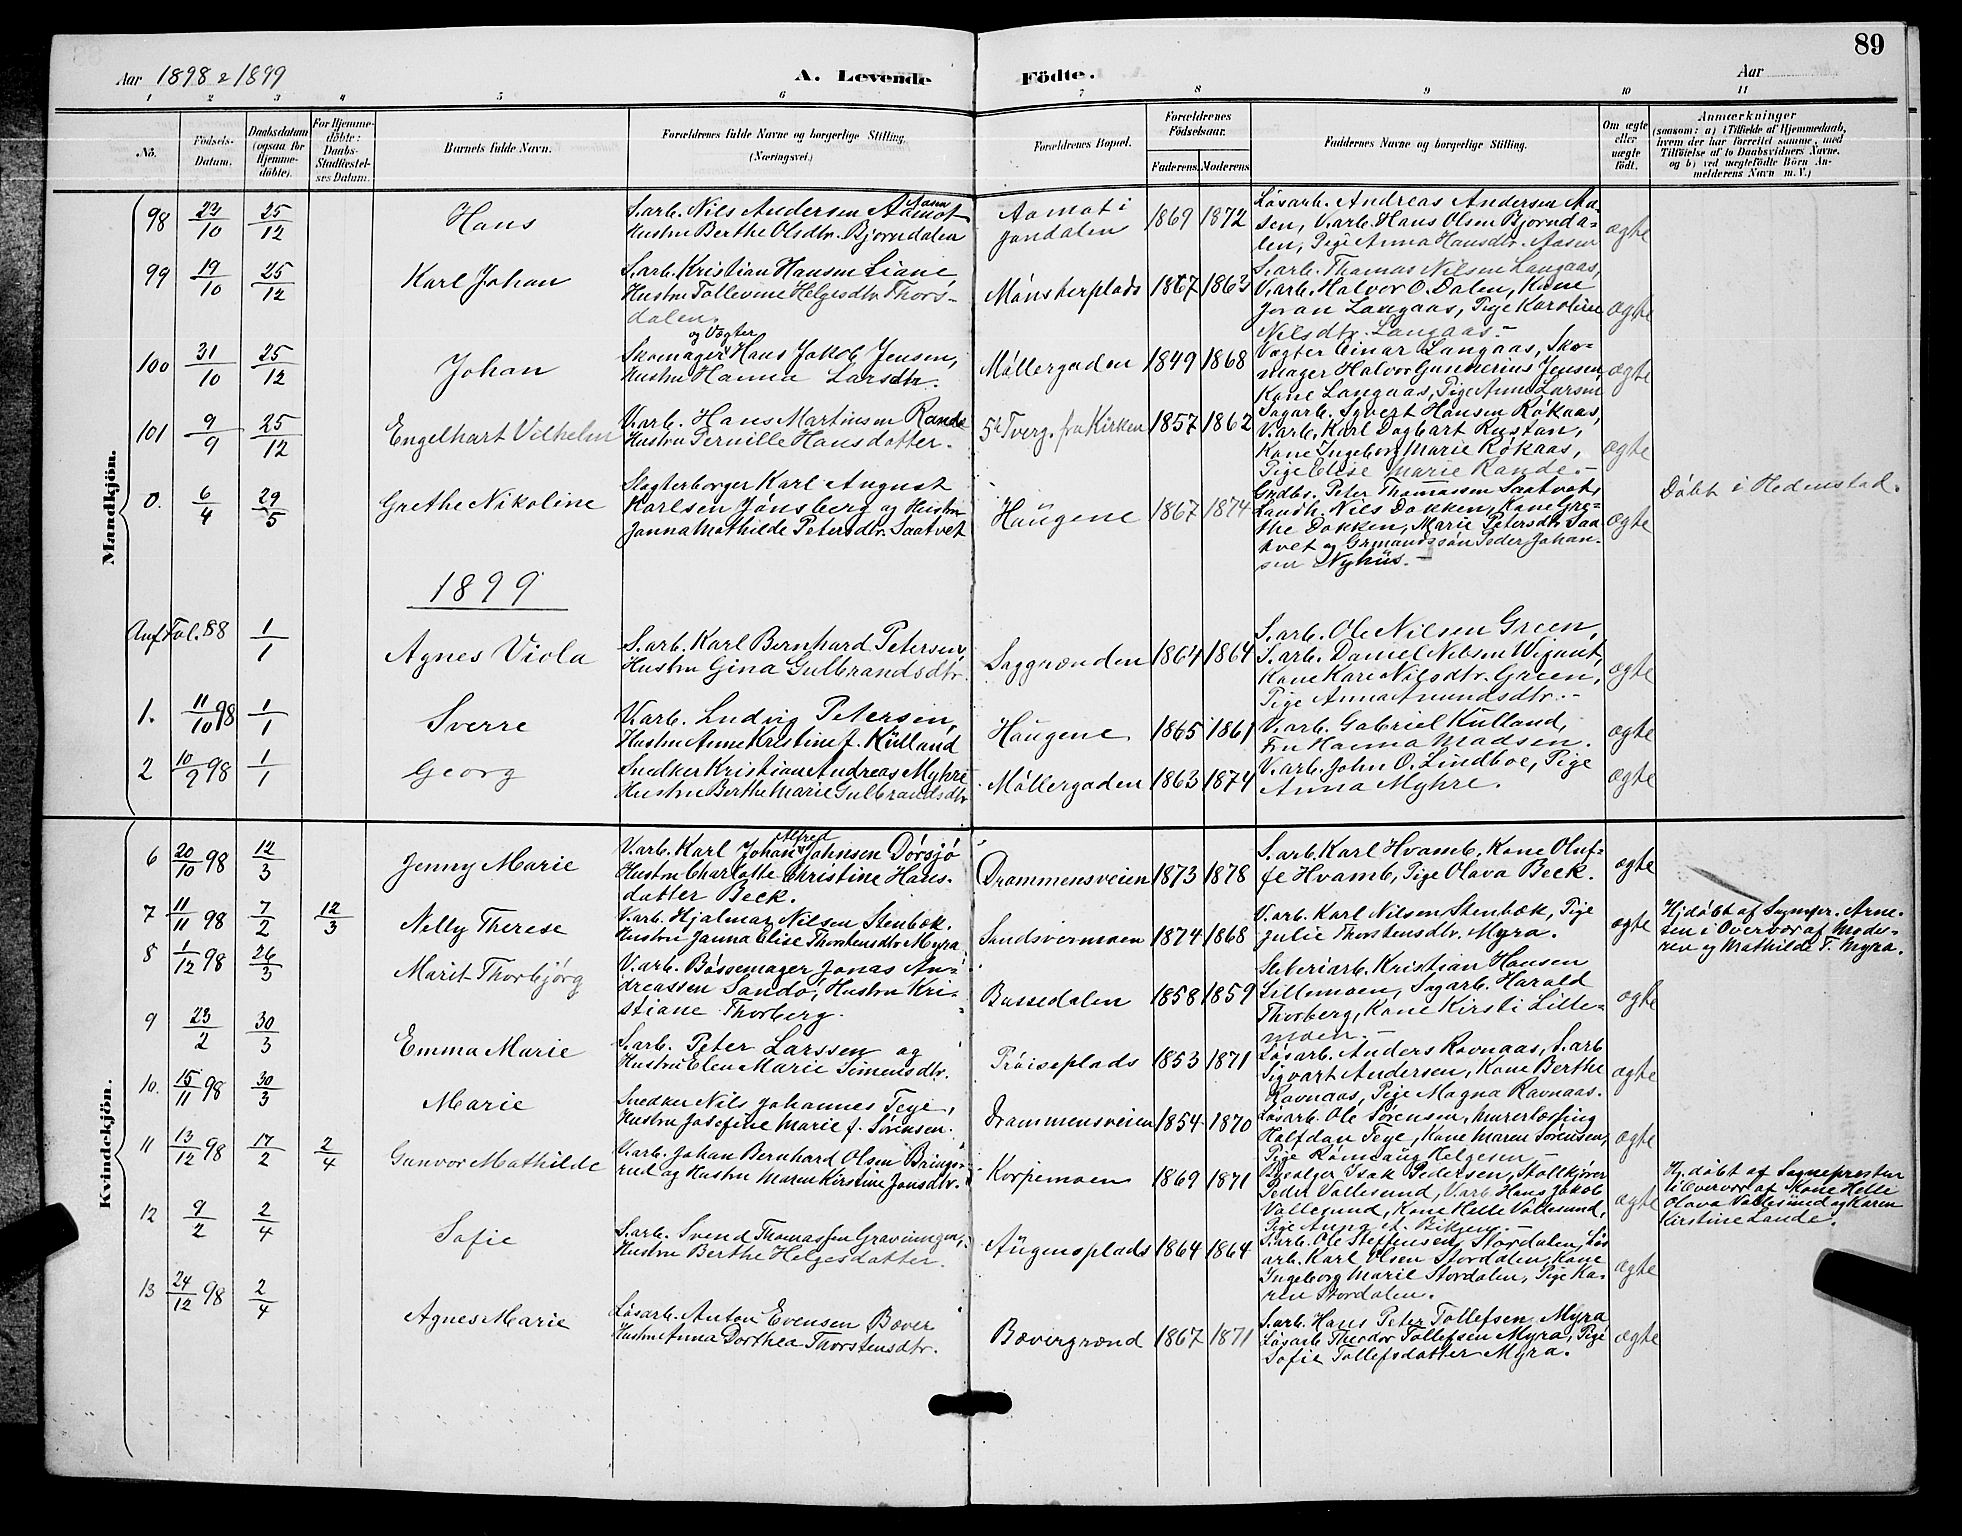 89
Aar 1898 & 1899 A. Levende Födte. Aar
1 2 3 4 5 6 7 8 9 10 11
No.
Födsels-Datum.
Daabsdatum (ogsaa for Hjemme-döbte).
For Hjemme-döbte: Daabs-Stadfæstel-ses Datum.
Barnets fulde Navn.
Forældrenes fulde Navne og borgerlige Stilling. (Næringsvei.)
Forældrenes Bopæl.
Forældrenes Födselsaar.
Faderens. Moderens.
Faddernes Navne og borgerlige Stilling.
Om ægte eller uægte födt.
Anmærkninger
(saasom: a) i Tilfælde af Hjemmedaab,
hvem der har forrettet samme, med
Tilföielse af to Daabsvidners Navne,
og b) ved uægtefödte Börn An-
melderens Navn m. V.)
Mandkjön.
98 23/10 25/12 Hans
S.arb. Nils Andersen Aamot
Hustru Berthe Olsdtr. Bjørndalen
Aamot i
Jondalen 1869 1872
Løsarb. Andreas Andersen Mo-
sen, V.arb. Hans Olsen Bjørnda-
len, Pige Anna Hansdtr. Aasen
ægte
99 19/10 25/12 Karl Johan
S.arb. Kristian Hansen Liane
Hustru Tollevine Helgesdtr. Thors-
dalen.
Mønsterplads 1867 1863
S.arb. Thomas Nilsen Langaas,
V.arb. Halvor O. Dalen, Kone
Joran Langaas, Pige Karoline
Nilsdtr. Langaas.-
ægte
100 31/10 25/12 Johan
og Vægter
Skomager Hans Jakob Jensen,
Hustru Hanna Larsdtr.
Møllergaden 1849 1868
Vægter Einar Langaas, Sko-
mager Halvor Gunnerius Jensen,
Kone Langaas, Pige Anne Larsen
ægte
101 9/9 25/12 Engelhart Vilhelm
V.arb. Hans Martinsen Rande
Hustru Pernille Hansdatter.
5te Tverg. fra Kirken 1857 1862
Sagarb. Syvert Hansen Røkaas,
V.arb. Karl Dagbart Rustan,
Kone Ingeborg Marie Røkaas,
Pige Elise Marie Rande.-
ægte
0. 6/4 29/5 Grethe Nikoline
Slagterborger Karl August
Karlsen Jønsberg og Hustru
Janna Mathilde Petersdtr. Saatvet
Haugene 1867 1874
Grdbr. Peter Thomassen Saatvet,
Landh. Nils Dokken, Kone Gre-
the Dokken, Marie Petersdtr. Saa-
tvet og Grmandssøn Peder Johan-
sen Nyhus.-
ægte
Døbt i Hedenstad.
1899
Anf. Fol. 88 1/1 Agnes Viola
S.arb. Karl Bernhard Petersen,
Hustru Gina Gulbrandsdtr.
Saggrænden 1864 1864
S.arb. Ole Nilsen Green,
S.arb. Daniel Nilsen Wigant,
Kone Kari Nilsdtr. Green,
Pige Anna Amundsdtr.-
ægte
1. 11/10 98 1/1 Sverre
V.arb. Ludvig Petersen,
Hustru Anne Kristine f. Kulland
Haugene 1865 1861
V.arb. Gabriel Kulland,
Fru Hanna Madsen.
ægte
2 10/9 98 1/1 Georg
Snedker Kristian Andreas Myhre
Hustru Berthe Marie Gulbrandsdtr
Møllergaden 1863 1874
V.arb. John O. Lindboe, Pige
Anna Myhre.
ægte
Kvindekjön.
6 20/10 98 12/3 Jenny Marie
Alfred
V.arb. Karl Johan Johnsen Dørsjø
Hustru Charlotte Christine Hans-
datter Beck.
Drammensveien 1873 1878
S.arb. Karl Hvamb, Kone Oluf-
fe Hvamb, Pige Olava Beck.
ægte
7 11/11 98 7/2 12/3 Nelly Therese
V.arb. Hjalmar Nilsen Stenbæk.
Hustru Janna Elise Thorstensdtr. Myra
Sandsværmoen 1874 1868
V.arb. Karl Nilsen Stenbæk, Pige
Julie Thorstensdtr. Myra.
ægte
Hj.døbt af Sognepr. Arne-
sen i Overvær af Mode-
ren og Mathilde T. Myra.
8 1/12 98 26/3 Marit Thorbjørg
V.arb. Bøssemager Jonas An-
dreassen Sando, Hustru Kri-
stiane Thorberg.
Bussedalen 1858 1859
Støberiarb. Kristian Hansen
Lillemoen, Sagarb. Harald
Thorberg, Kone Kirsti Lille-
moen.-
ægte
9 23/2 30/3 Emma Marie
S.arb. Peter Larssen og
Hustru Elen Marie Simensdtr.
Prøiseplads 1853 1871
Løsarb. Anders Ravnaas, S.arb
Sigvart Andersen, Kone Berthe
Ravnaas, Pige Magna Ravnaas.
ægte
10. 15/11 98 30/3 Marie
Snedker Nils Johannes Teye,
Hustru Josefine Marie f. Sørensen.
Drammensveien 1854 1870
Løsarb. Ole Sørensen, Murerlærling
Halfdan Teye, Kone Maren Sørensen,
Pige Rømaug Helgesen.-
ægte
11 13/12 98 17/2 2/4 Gunvor Mathilde
V.arb. Johan Bernhard Olsen Bringe-
rud og Hustru Maren Kirstine Jonsdtr.
Korpemoen 1869 1871
Isak Pedersen, Stollkjører
Peder Vollesund, V.arb Hans Jakob
Vollesund, Kone Helle Vollesund,
Pige Anna A. Bikjen.-
ægte
Hj.døbt af Sognepresten
i Overvær af Kone Helle
Olava Vallesund og Karen
Kirstine Lande.
12 9/2 2/4 Sofie
S.arb. Svend Thomassen Gravningen,
Hustru Berthe Helgesdatter.
Augensplads 1864 1864
S.arb. Ole Steffensen Stordalen, Løs
arb. Karl Olsen Stordalen, Kone
Ingeborg Marie Stordalen, Pige Ka-
ren Stordalen.
ægte
13 24/12 98 2/4 Agnes Marie
Løsarb. Anton Evensen Bæver
Hustru Anna Dorthea Thorstensdtr.
Bævergrænd 1867 1871
S.arb. Hans Peter Tollefsen Myra
Løsarb. Theodor Tollefsen Myra, Pige
Sofie Tollefsdatter Myra.
ægte